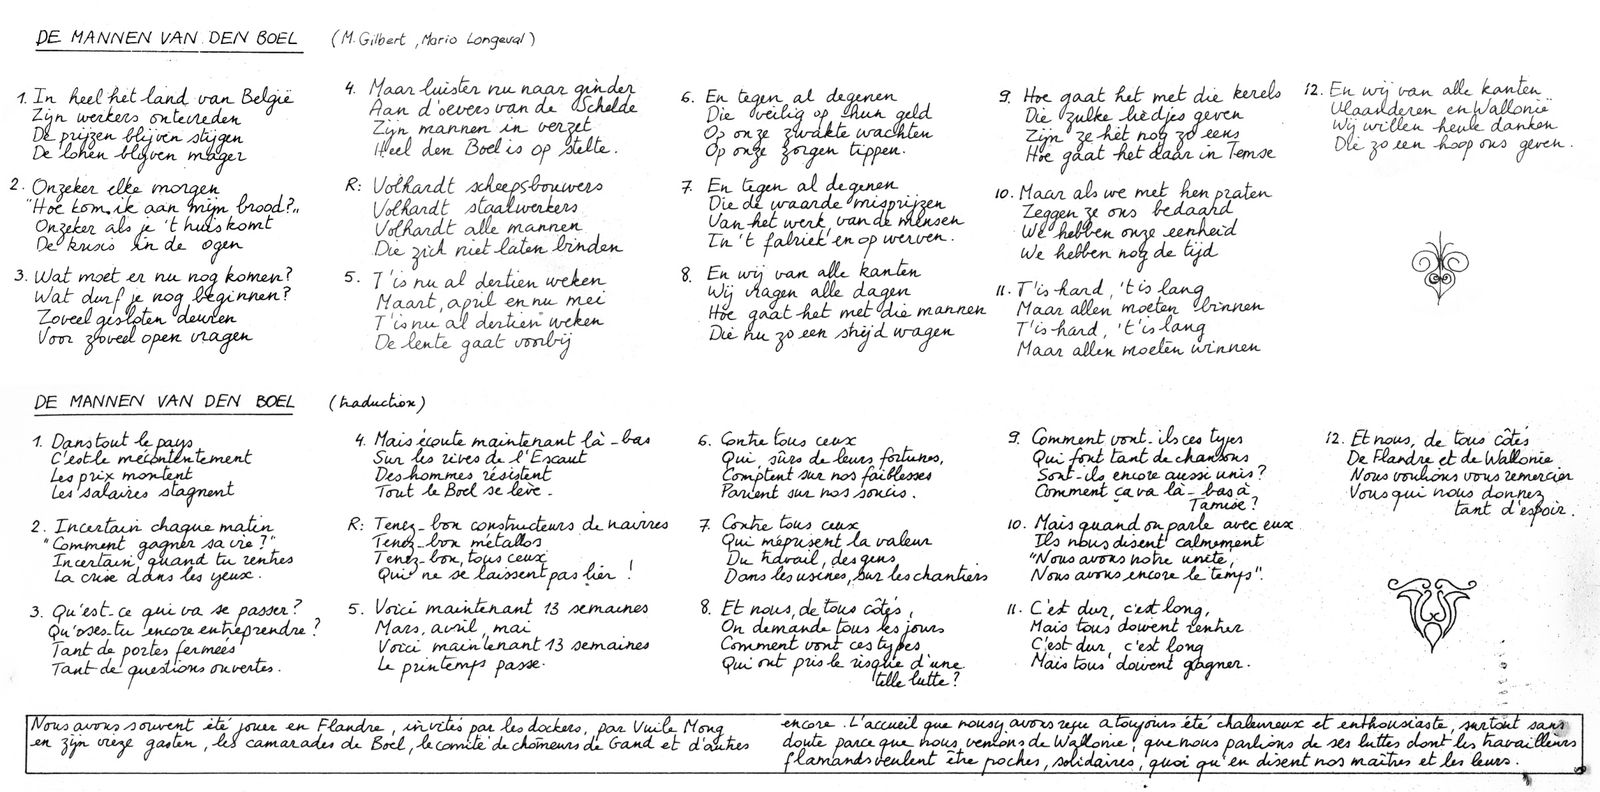 DE MANNEN VAN DEN BOEL (M. Gilbert, Mario Longeval)
1. In heel het land van België
Zijn werkers ontevreden
De prijzen blijven stijgen
De lonen blijven mager
2. Onzeker elke morgen
"Hoe kom ik aan mijn brood?"
Onzeker als je 't huis komt
De krisis in de ogen
3. Wat moet er nu nog komen?
Wat durf je nog beginnen?
Zoveel gesloten deuren
Voor zoveel open vragen
4. Maar luister nu naar ginder
Aan d'oevers van de Schelde
Zijn mannen in verzet
Heel den Boel is op stelte.
R: Volhardt scheepsbouwers
Volhardt staalwerkers
Volhardt alle mannen
Die zich niet laten binden
5. T'is nu al dertien weken
Maart, april en nu mei
T'is nu al dertien weken
De lente gaat voorbij
6. En tegen al degenen
Die veilig op hun geld
Op onze zwakte wachten
Op onze zorgen tippen.
7. En tegen al degenen
Die de waarde misprijzen
Van het werk, van de mensen
In 't fabriek en op werven.
8. En wij van alle kanten
Wij vragen alle dagen
Hoe gaat het met die mannen
Die nu zo een strijd wagen
9. Hoe gaat het met die kerels
Die zulke liedjes geven
Zijn ze het nog zo eens
Hoe gaat het daar in Temse
10. Maar als we met hen praten
Zeggen ze ons bedaard
We hebben onze eenheid
We hebben nog de tijd
11. T'is hard, 't is lang
Maar allen moeten binnen
T'is hard, 't is lang
Maar allen moeten winnen
12. En wij van alle kanten
Vlaanderen en Wallonië
Wij willen heule danken
Die zo een hoop ons geven.
DE MANNEN VAN DEN BOEL (traduction)
1. Dans tout le pays
C'est le mécontentement
Les prix montent
Les salaires stagnent
2. Incertain chaque matin
"Comment gagner sa vie?"
Incertain, quand tu rentres
La crise dans les yeux.
3. Qu'est-ce qui va se passer?
Qu'oses-tu encore entreprendre?
Tant de portes fermées
Tant de questions ouvertes.
4. Mais écoute maintenant là-bas
Sur les rives de l'Escaut
Des hommes résistent
Tout le Boel se lève.
R: Tenez-bon constructeurs de navires
Tenez-bon métallos
Tenez-bon, tous ceux
Qui ne se laissent pas lier!
5. Voici maintenant 13 semaines
Mars, avril, mai
Voici maintenant 13 semaines
Le printemps passe.
6. Contre tous ceux
Qui, sûrs de leurs fortunes,
Comptent sur nos faiblesses
Parient sur nos soucis.
7. Contre tous ceux
Qui méprisent la valeur
Du travail, des gens
Dans les usines, sur les chantiers
8. Et nous, de tous côtés,
On demande tous les jours
Comment vont ces types
Qui ont pris le risque d'une
telle lutte?
9. Comment vont-ils ces types
Qui font tant de chansons
Sont-ils encore aussi unis?
Comment ça va là-bas à
Tamise?
10. Mais quand on parle avec eux
Ils nous disent calmement
"Nous avons notre unité,
Nous avons encore le temps".
11. C'est dur, c'est long,
Mais tous doivent rentrer
C'est dur, c'est long
Mais tous doivent gagner.
12. Et nous, de tous côtés
De Flandre et de Wallonie
Nous voulions vous remercier
Vous qui nous donnez
tant d'espoir.
Nous avons souvent été jouer en Flandre, invités par les dockers, par Vuile Mong
en zijn vieze gasten, les camarades de Boël, le comité de chômeurs de Gand et d'autres
encore. L'accueil que nous y avons reçu a toujours été chaleureux et enthousiaste, surtout sans
doute parce que nous venions de Wallonie, que nous parlions de ses luttes dont les travailleurs
flamands veulent être proches, solidaires, quoi qu'en disent nos maîtres et les leurs.